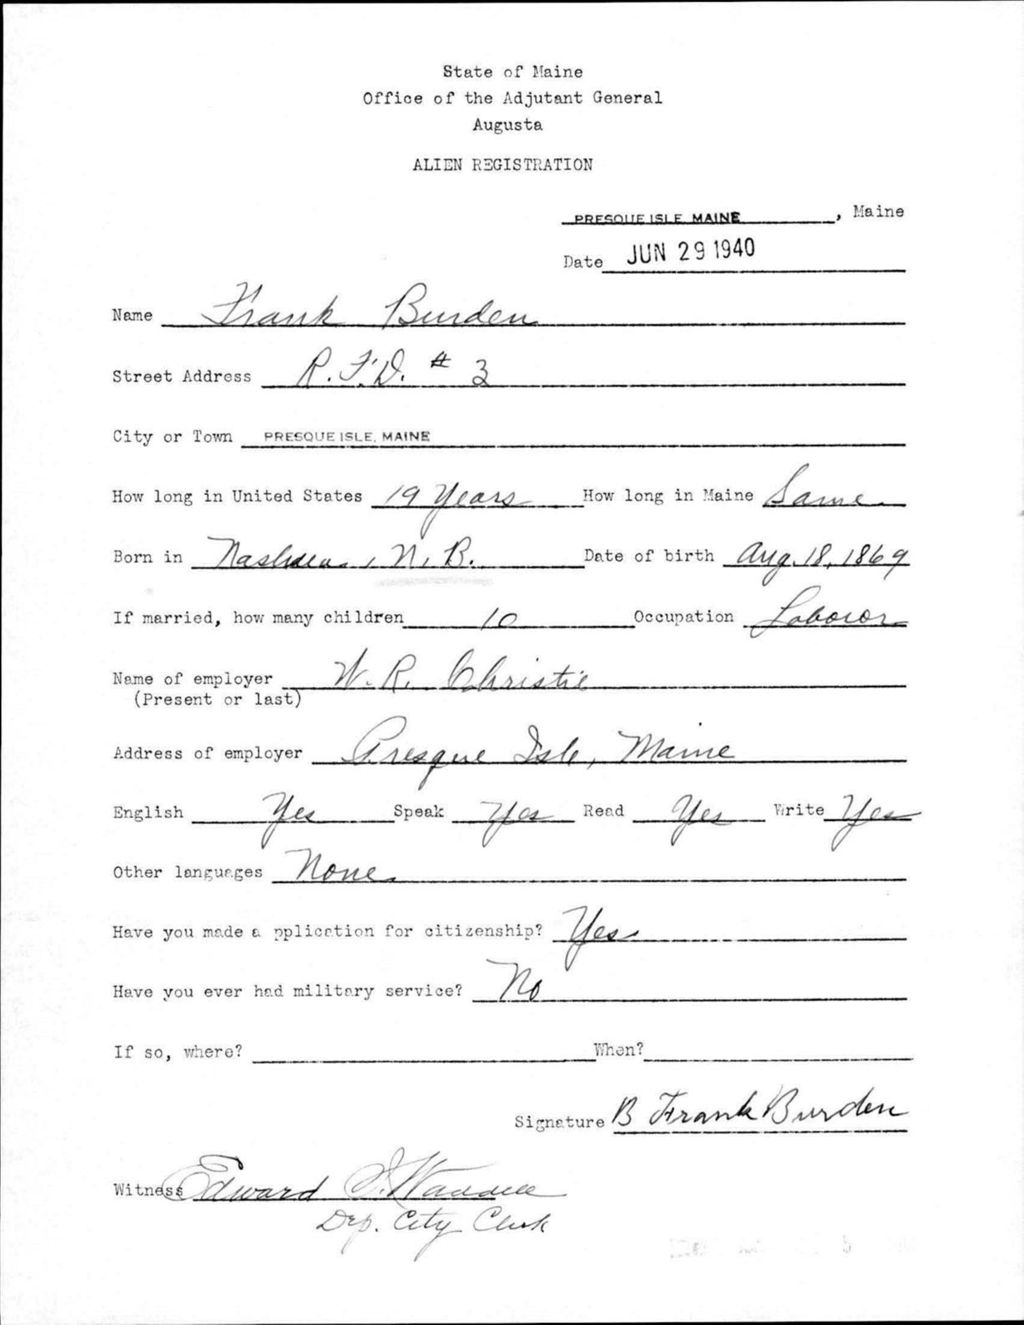 State of Maine
Office of the Adjutant General
Augusta
ALIEN REGISTRATION
PRESQUE ISLE, MAINE , Maine
Date JUN 29 1940
Name Frank Burden
Street Address R.F.D. # 3
City or Town PRESQUE ISLE, MAINE
How long in United States 19 Years How long in Maine Same
Born in N.B. Date of birth Aug. 18, 1869
If married, how many children 10 Occupation Laboror
Name of employer W. R. Christie
(Present or last)
Address of employer Presque Isle, Maine
English Yes Speak Yes Read Yes Write Yes
Other languages None
Have you made a pplication for citizenship? Yes
Have you ever had military service? No
If so, where? When?
Signature B Frank Burden
Witness Edward
Dep. City Clerk